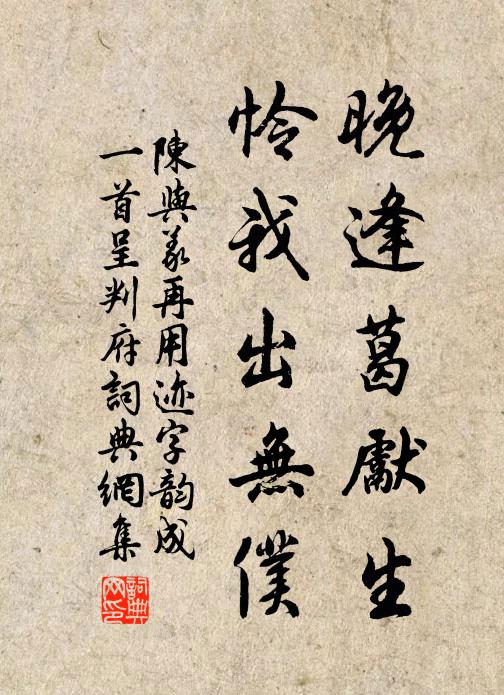 晚逢葛獻生
怜我出無僕
陳與義再用迹字韵成
一首呈判府詞典網集
詞典
网印